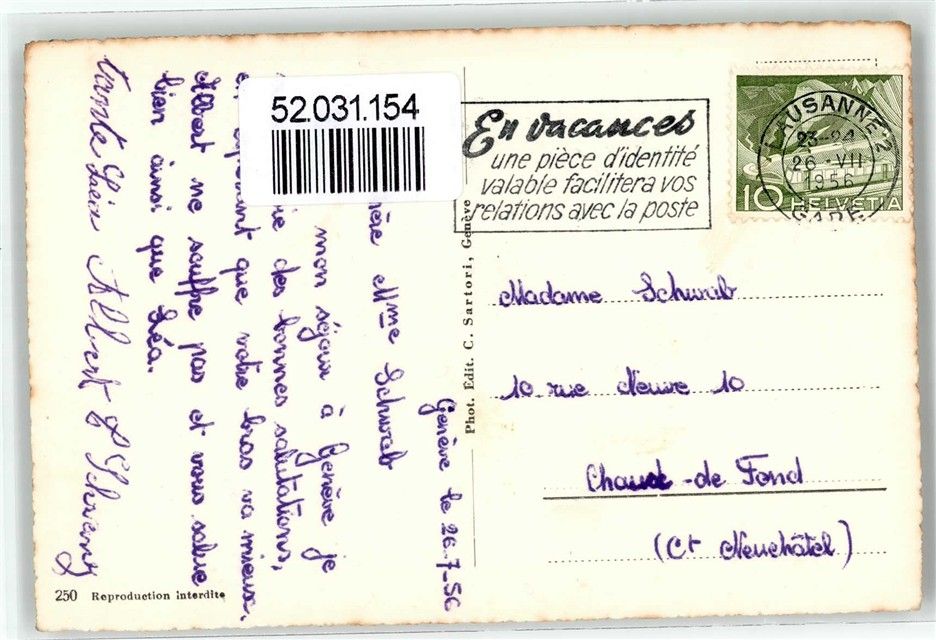 52.031.154
En vacances
une pièce d'identité
valable facilitera vos
relations avec la poste
LAUSANNE 2
23-24
26 · VII
1956
GARE
10 HELVETIA
Genève le 26-7-56
Mme Schwab
mon séjour à Genève je
des bonnes salutations,
que votre bras va mieux.
Albert ne souffre pas et vous salue
bien ainsi que Léa.
tante Albert
Phot. Édit. C. Sartori, Genève
Madame Schwab
10 rue Neuve 10
Chaux-de Fond
(Ct Neuchâtel)
250 Reproduction interdite